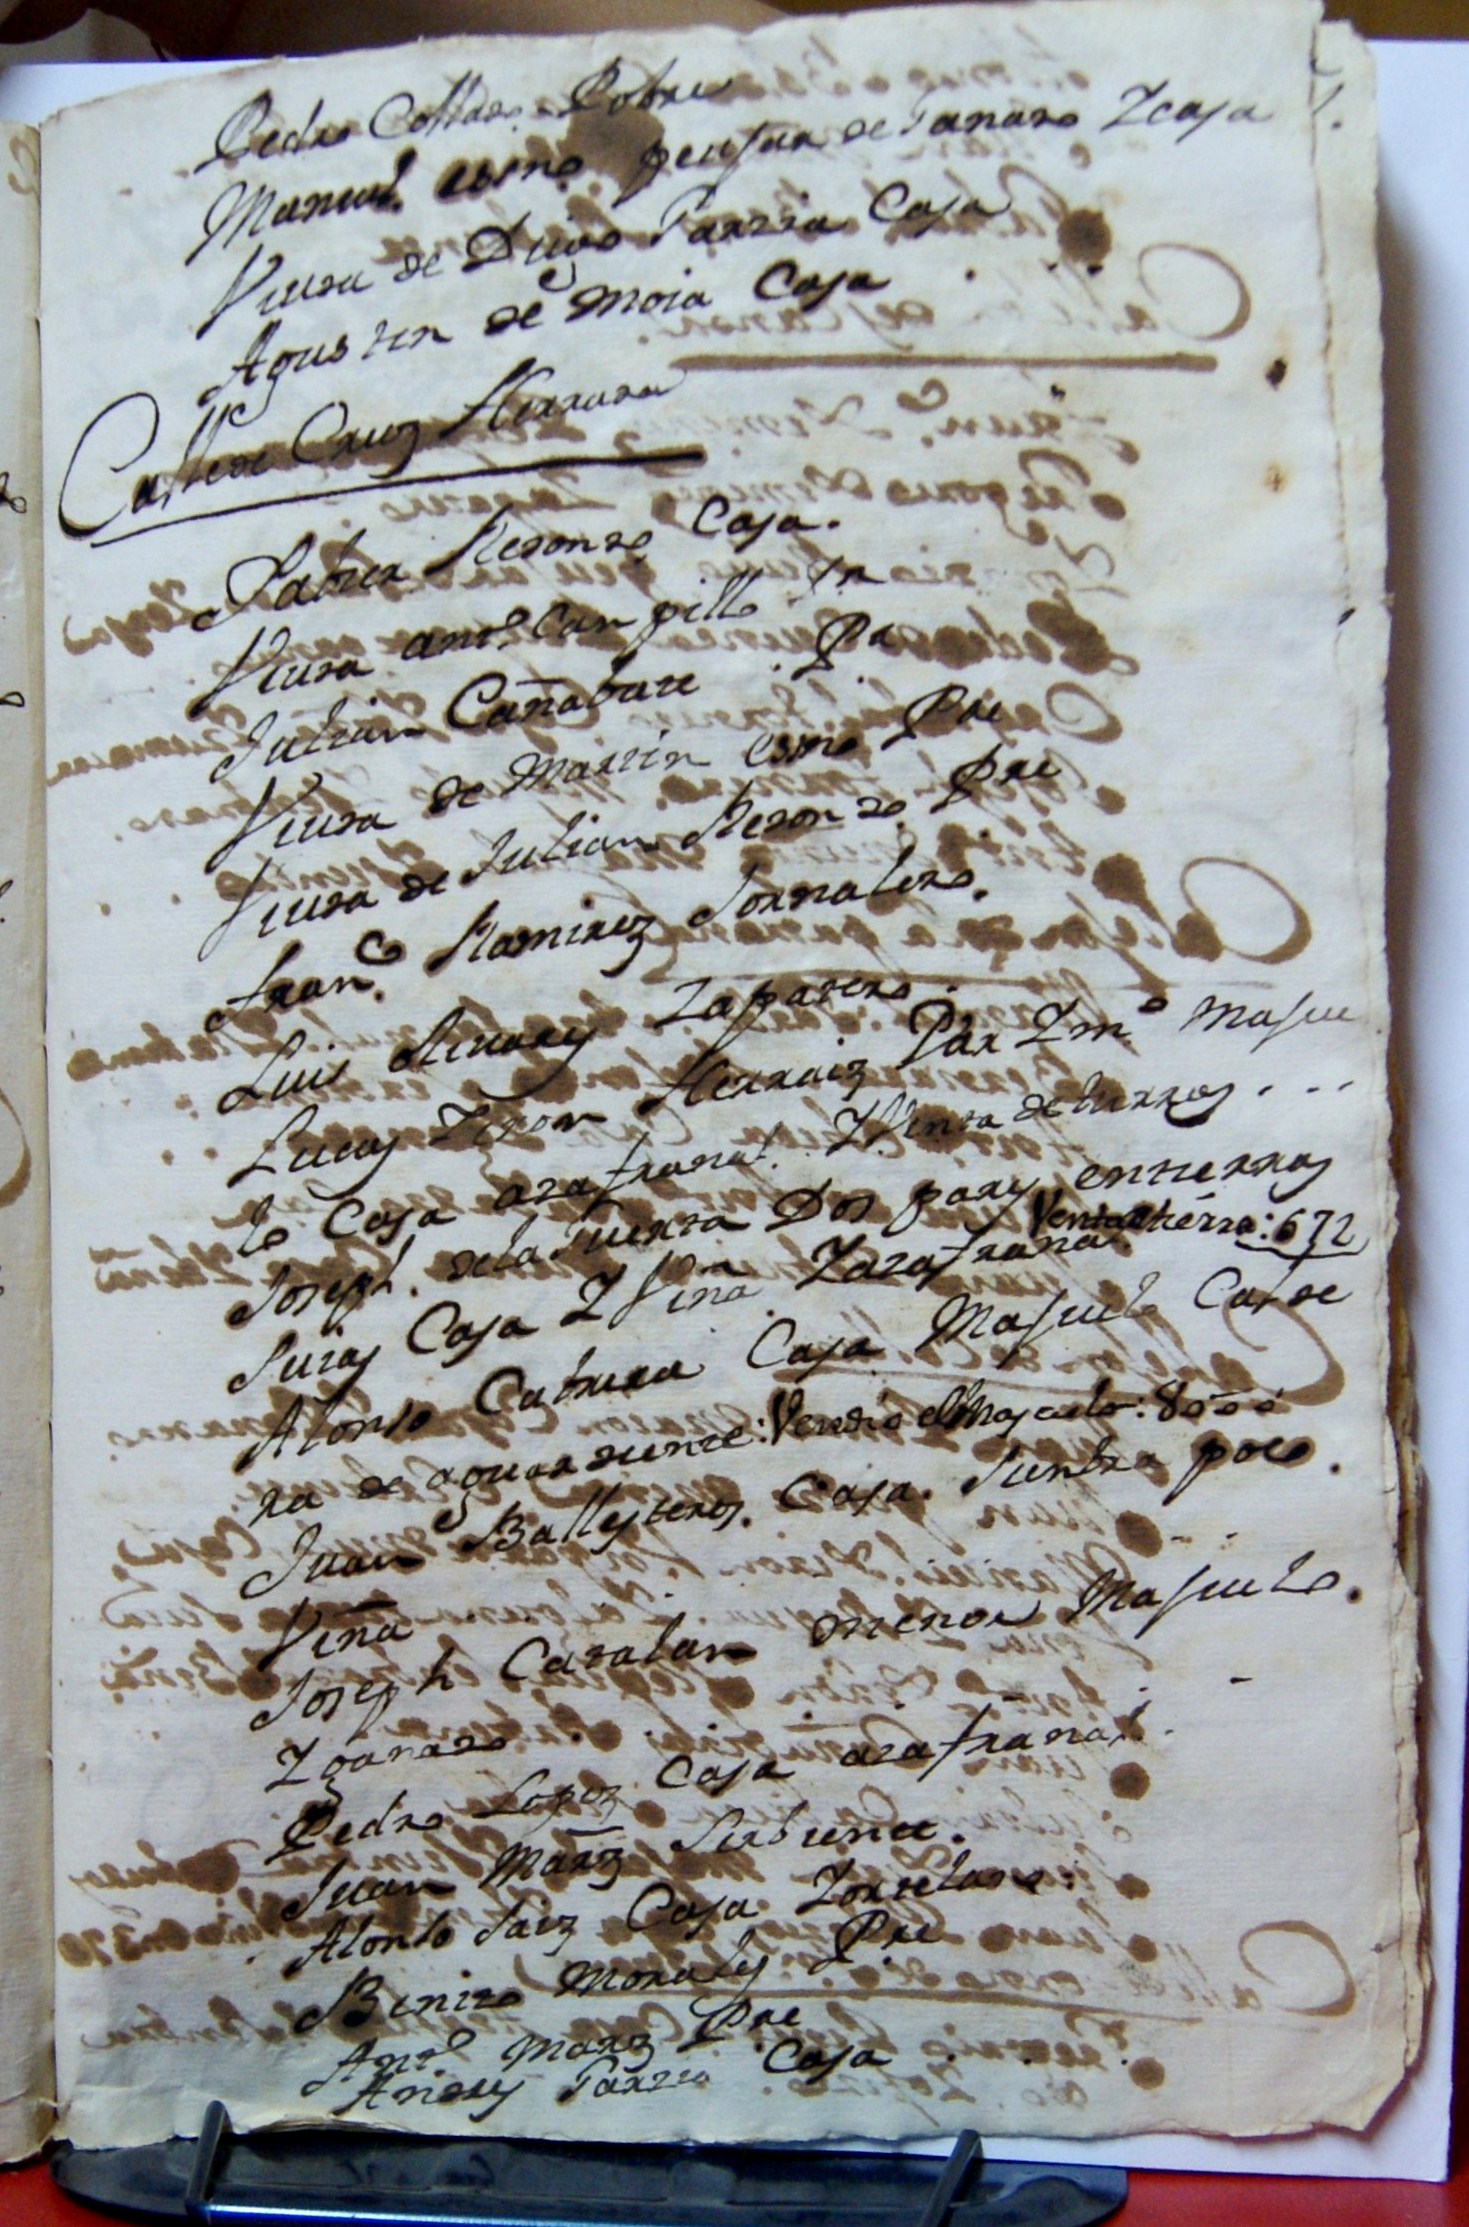 Pedro Collado Pobre
Manuel esmo pensar de Ganado Y casa
Viuda de Diego Garzia Casa
Agustin de Moia Casa
Calle de Cruz Herrada
Gabiel Redondo Casa.
Viuda Anto Campillo
Julian Cañabate Pe
Viuda de Martin esmo Pre
Viuda de Julian Redondo Pre
Franco Ramirez Jornalero.
Luis Zapatero.
Lucas Herraiz Par Y mo Masue
lo Casa azafranal. Y Venta de burros...
Joseph. de la Fuensa Dos pares en tierras
suias Casa Y Viña Y azafranal. Venta tierra: 672
Alonso Cabrera Casa Masuelo Calde
ra de aguardiente: Vendio el Majuelo: 8000
Juan Ballesteros. Casa. Siembra poco.
Viña
Joseph Catalan menor Masuelo.
Y ganado
Pedro Lopez Casa azafranal.
Juan Marz Sirbiente.
Alonso Saiz Casa Y orttelano:
Benito Morales Pre
Anto Marz Pre
Andres Garzia Casa